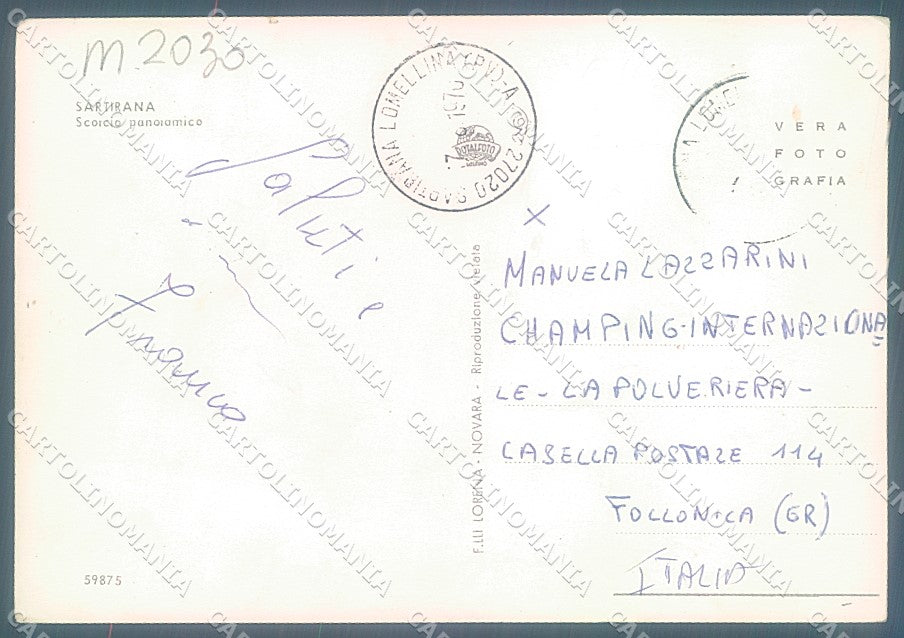 M 2030
SARTIRANA
Scorcio panoramico
Saluti e
Franco
59875
F.LLI LORENA - NOVARA - Riproduzione vietata
SARTIRANA LOMELLINA (PV) - A
27020
1970
TOTALFOTO
VERA
FOTO
GRAFIA
X
MANUELA LAZZARINI
CHAMPING-INTERNAZIONA
LE - LA POLVERIERA -
CASELLA POSTALE 114
FOLLONICA (GR)
ITALIA
CARTOLINOMANIA